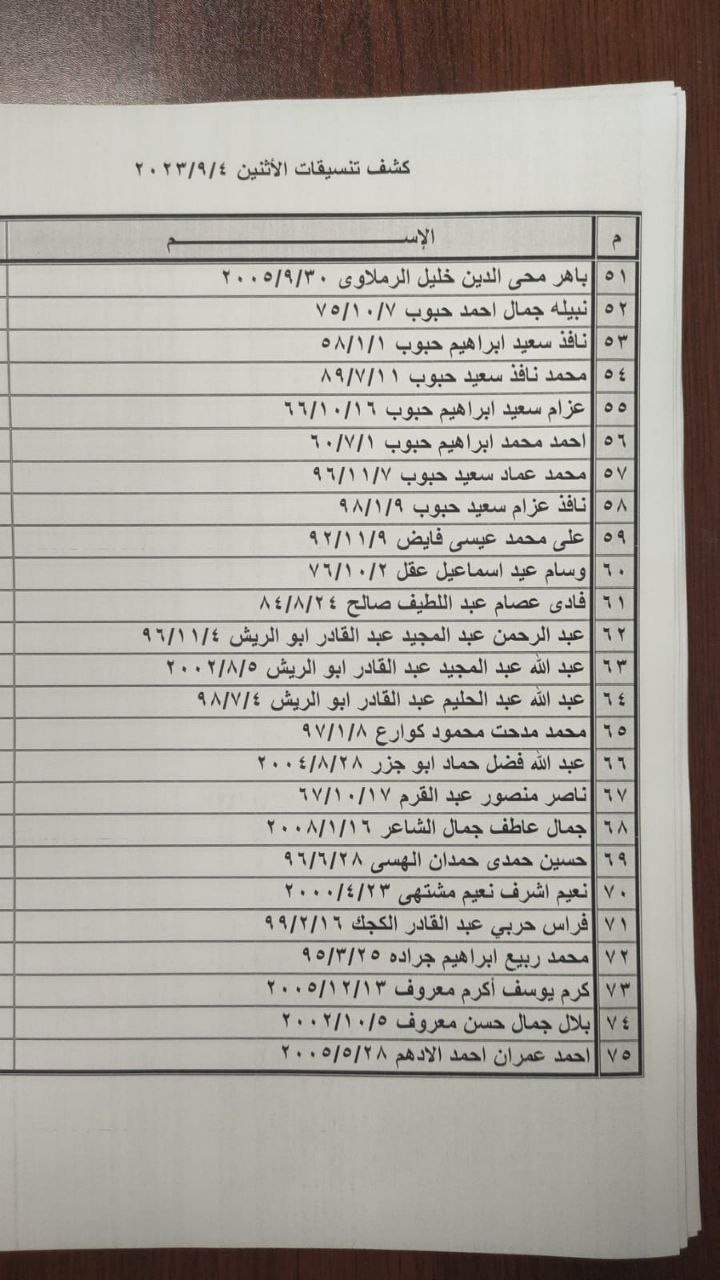 كشف تنسيقات الأثنين ٢٠٢٣/٩/٤
م الإســـــــــــــــــــــم
٥١ باهر محى الدين خليل الرملاوى ٢٠٠٥/٩/٣٠
٥٢ نبيله جمال احمد حبوب ٧٥/١٠/٧
٥٣ نافذ سعيد ابراهيم حبوب ٥٨/١/١
٥٤ محمد نافذ سعيد حبوب ٨٩/٧/١١
٥٥ عزام سعيد ابراهيم حبوب ٦٦/١٠/١٦
٥٦ احمد محمد ابراهيم حبوب ٦٠/٧/١
٥٧ محمد عماد سعيد حبوب ٩٦/١١/٧
٥٨ نافذ عزام سعيد حبوب ٩٨/١/٩
٥٩ على محمد عيسى فايض ٩٢/١١/٩
٦٠ وسام عيد اسماعيل عقل ٧٦/١٠/٢
٦١ فادى عصام عبد اللطيف صالح ٨٤/٨/٢٤
٦٢ عبد الرحمن عبد المجيد عبد القادر ابو الريش ٩٦/١١/٤
٦٣ عبد الله عبد المجيد عبد القادر ابو الريش ٢٠٠٢/٨/٥
٦٤ عبد الله عبد الحليم عبد القادر ابو الريش ٩٨/٧/٤
٦٥ محمد مدحت محمود كوارع ٩٧/١/٨
٦٦ عبد الله فضل حماد ابو جزر ٢٠٠٤/٨/٢٨
٦٧ ناصر منصور عبد القرم ٦٧/١٠/١٧
٦٨ جمال عاطف جمال الشاعر ٢٠٠٨/١/١٦
٦٩ حسين حمدى حمدان الهسى ٩٦/٦/٢٨
٧٠ نعيم اشرف نعيم مشتهى ٢٠٠٠/٤/٢٣
٧١ فراس حربي عبد القادر الكجك ٩٩/٢/١٦
٧٢ محمد ربيع ابراهيم جراده ٩٥/٣/٢٥
٧٣ كرم يوسف أكرم معروف ٢٠٠٥/١٢/١٣
٧٤ بلال جمال حسن معروف ٢٠٠٢/١٠/٥
٧٥ احمد عمران احمد الادهم ٢٠٠٥/٥/٢٨